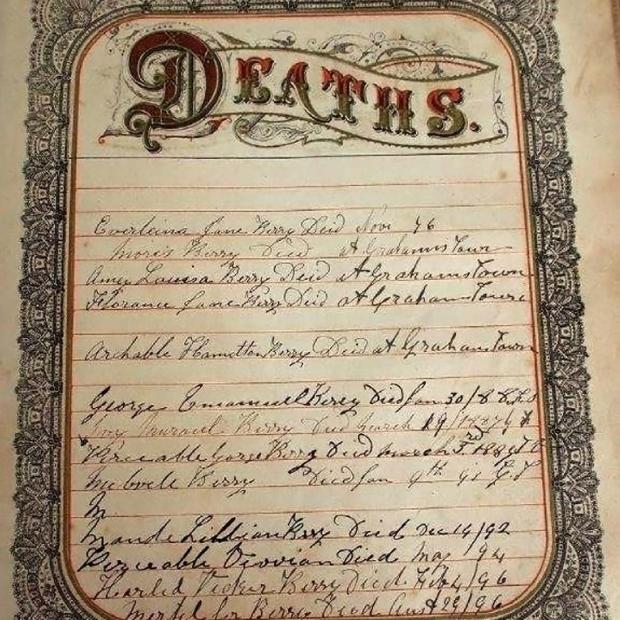 DEATHS.
Everleina Jane Berry Deid Nov 76
Moris Berry Died at Grahams Town
Amy Louisa Berry Deid at Grahams Town
Florance Jane Berry Deid at Graham Town
Archable Hamilton Berry Deid at Graham Town
George Emanuel Berry Died Jan 30/88
Ivy Berry Died March 19/1887
Perceable George Berry Died March 3rd 1889
Melvele Berry Died Jan 9th 91
M
Maude Lillian Berry Died Dec 14/92
Perceable Vivvian Died May 94
Harled Vicker Berry Died Feb 4/96
Berry Died Aust 29/96